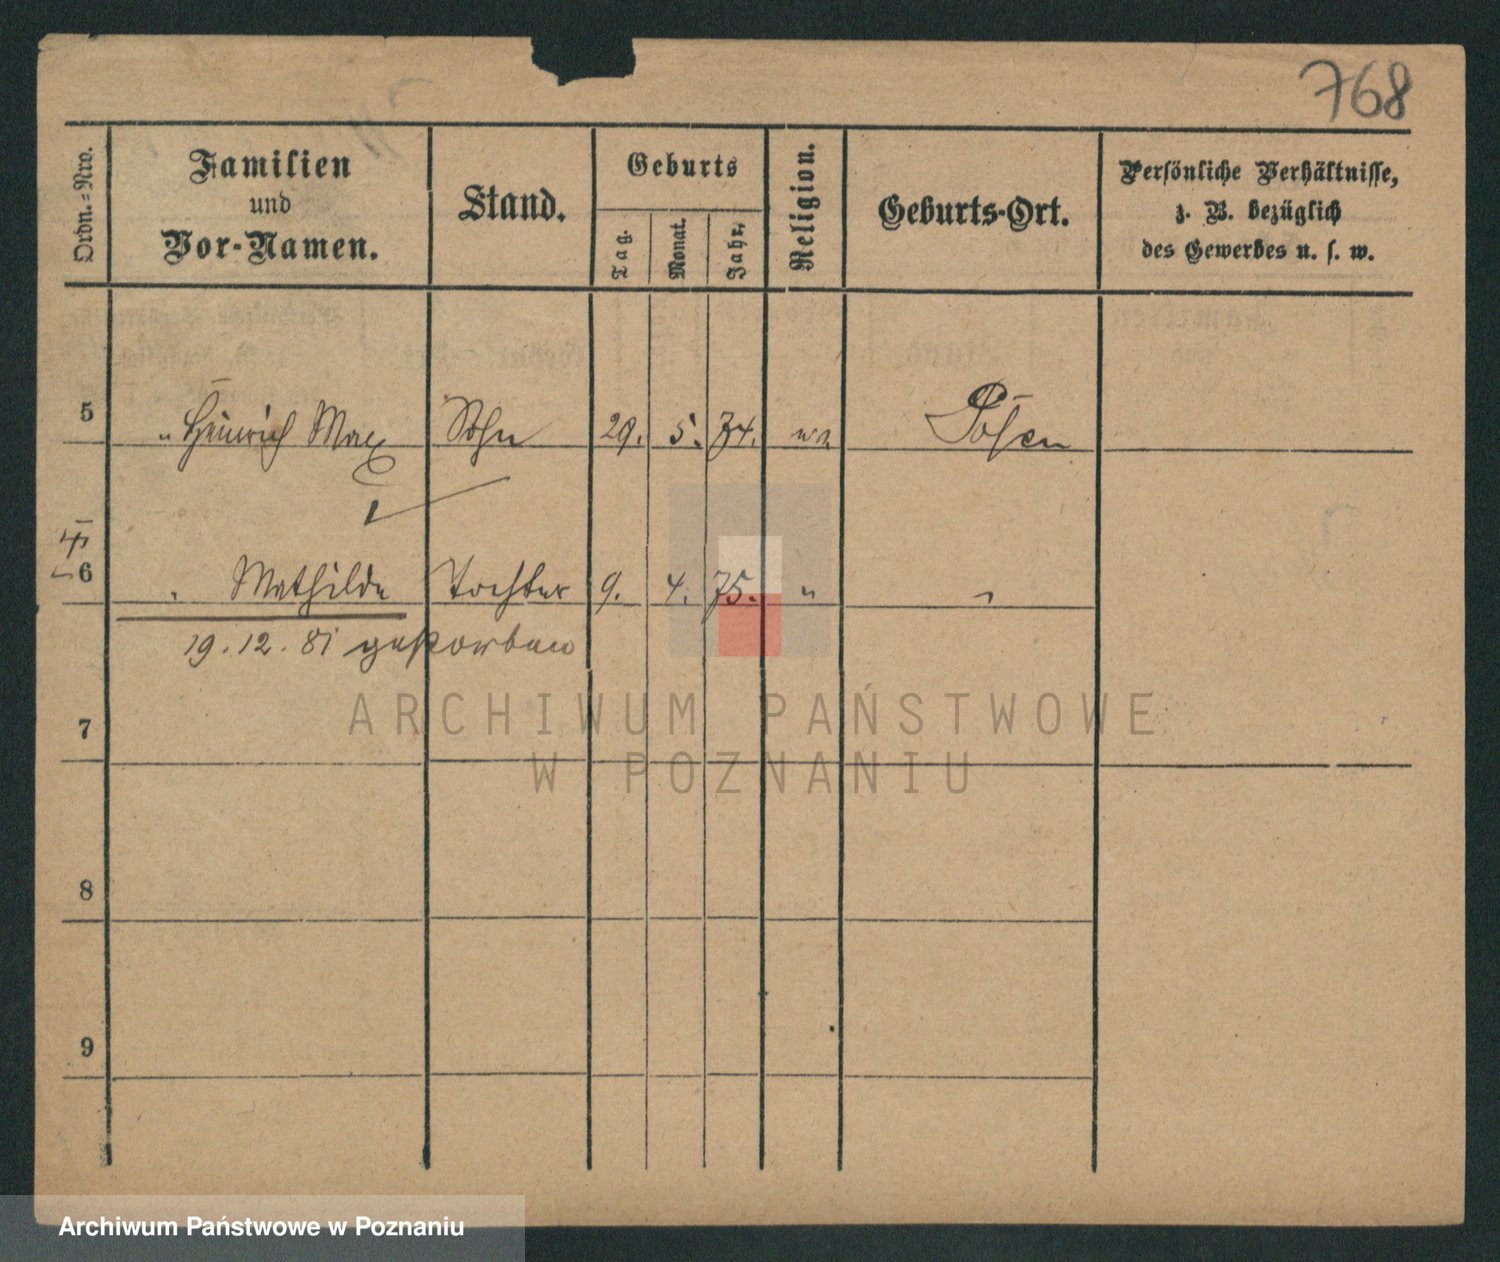 768
Ordn.-Nro.
Familien
und
Vor-Namen.
Stand.
Geburts
Tag.
Monat.
Jahr.
Religion.
Geburts-Ort.
Persönliche Verhältnisse,
z. B. bezüglich
des Gewerbes u. s. w.
5 " Heinrich Max Sohn 29. 5. 74. Posen
6 " Mathilde Tochter 9. 4. 75. " "
19. 12. 81 gestorben
7
ARCHIWUM PAŃSTWOWE
W POZNANIU
8
9
Archiwum Państwowe w Poznaniu